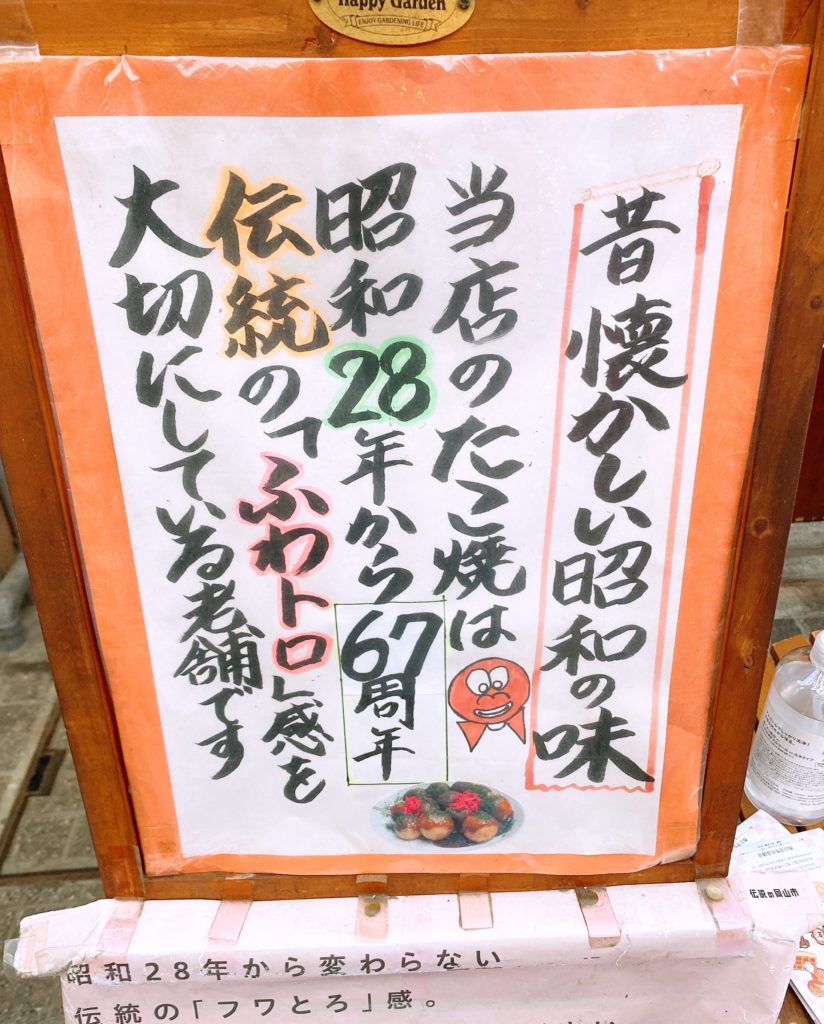 Happy Garden
ENJOY GARDENING LIFE
昔懐かしい昭和の味
当店のたこ焼は
昭和28年から67周年
伝統の「ふわトロ」感を
大切にしている老舗です
伝説の岡山市
昭和28年から変わらない
伝統の「フワとろ」感。